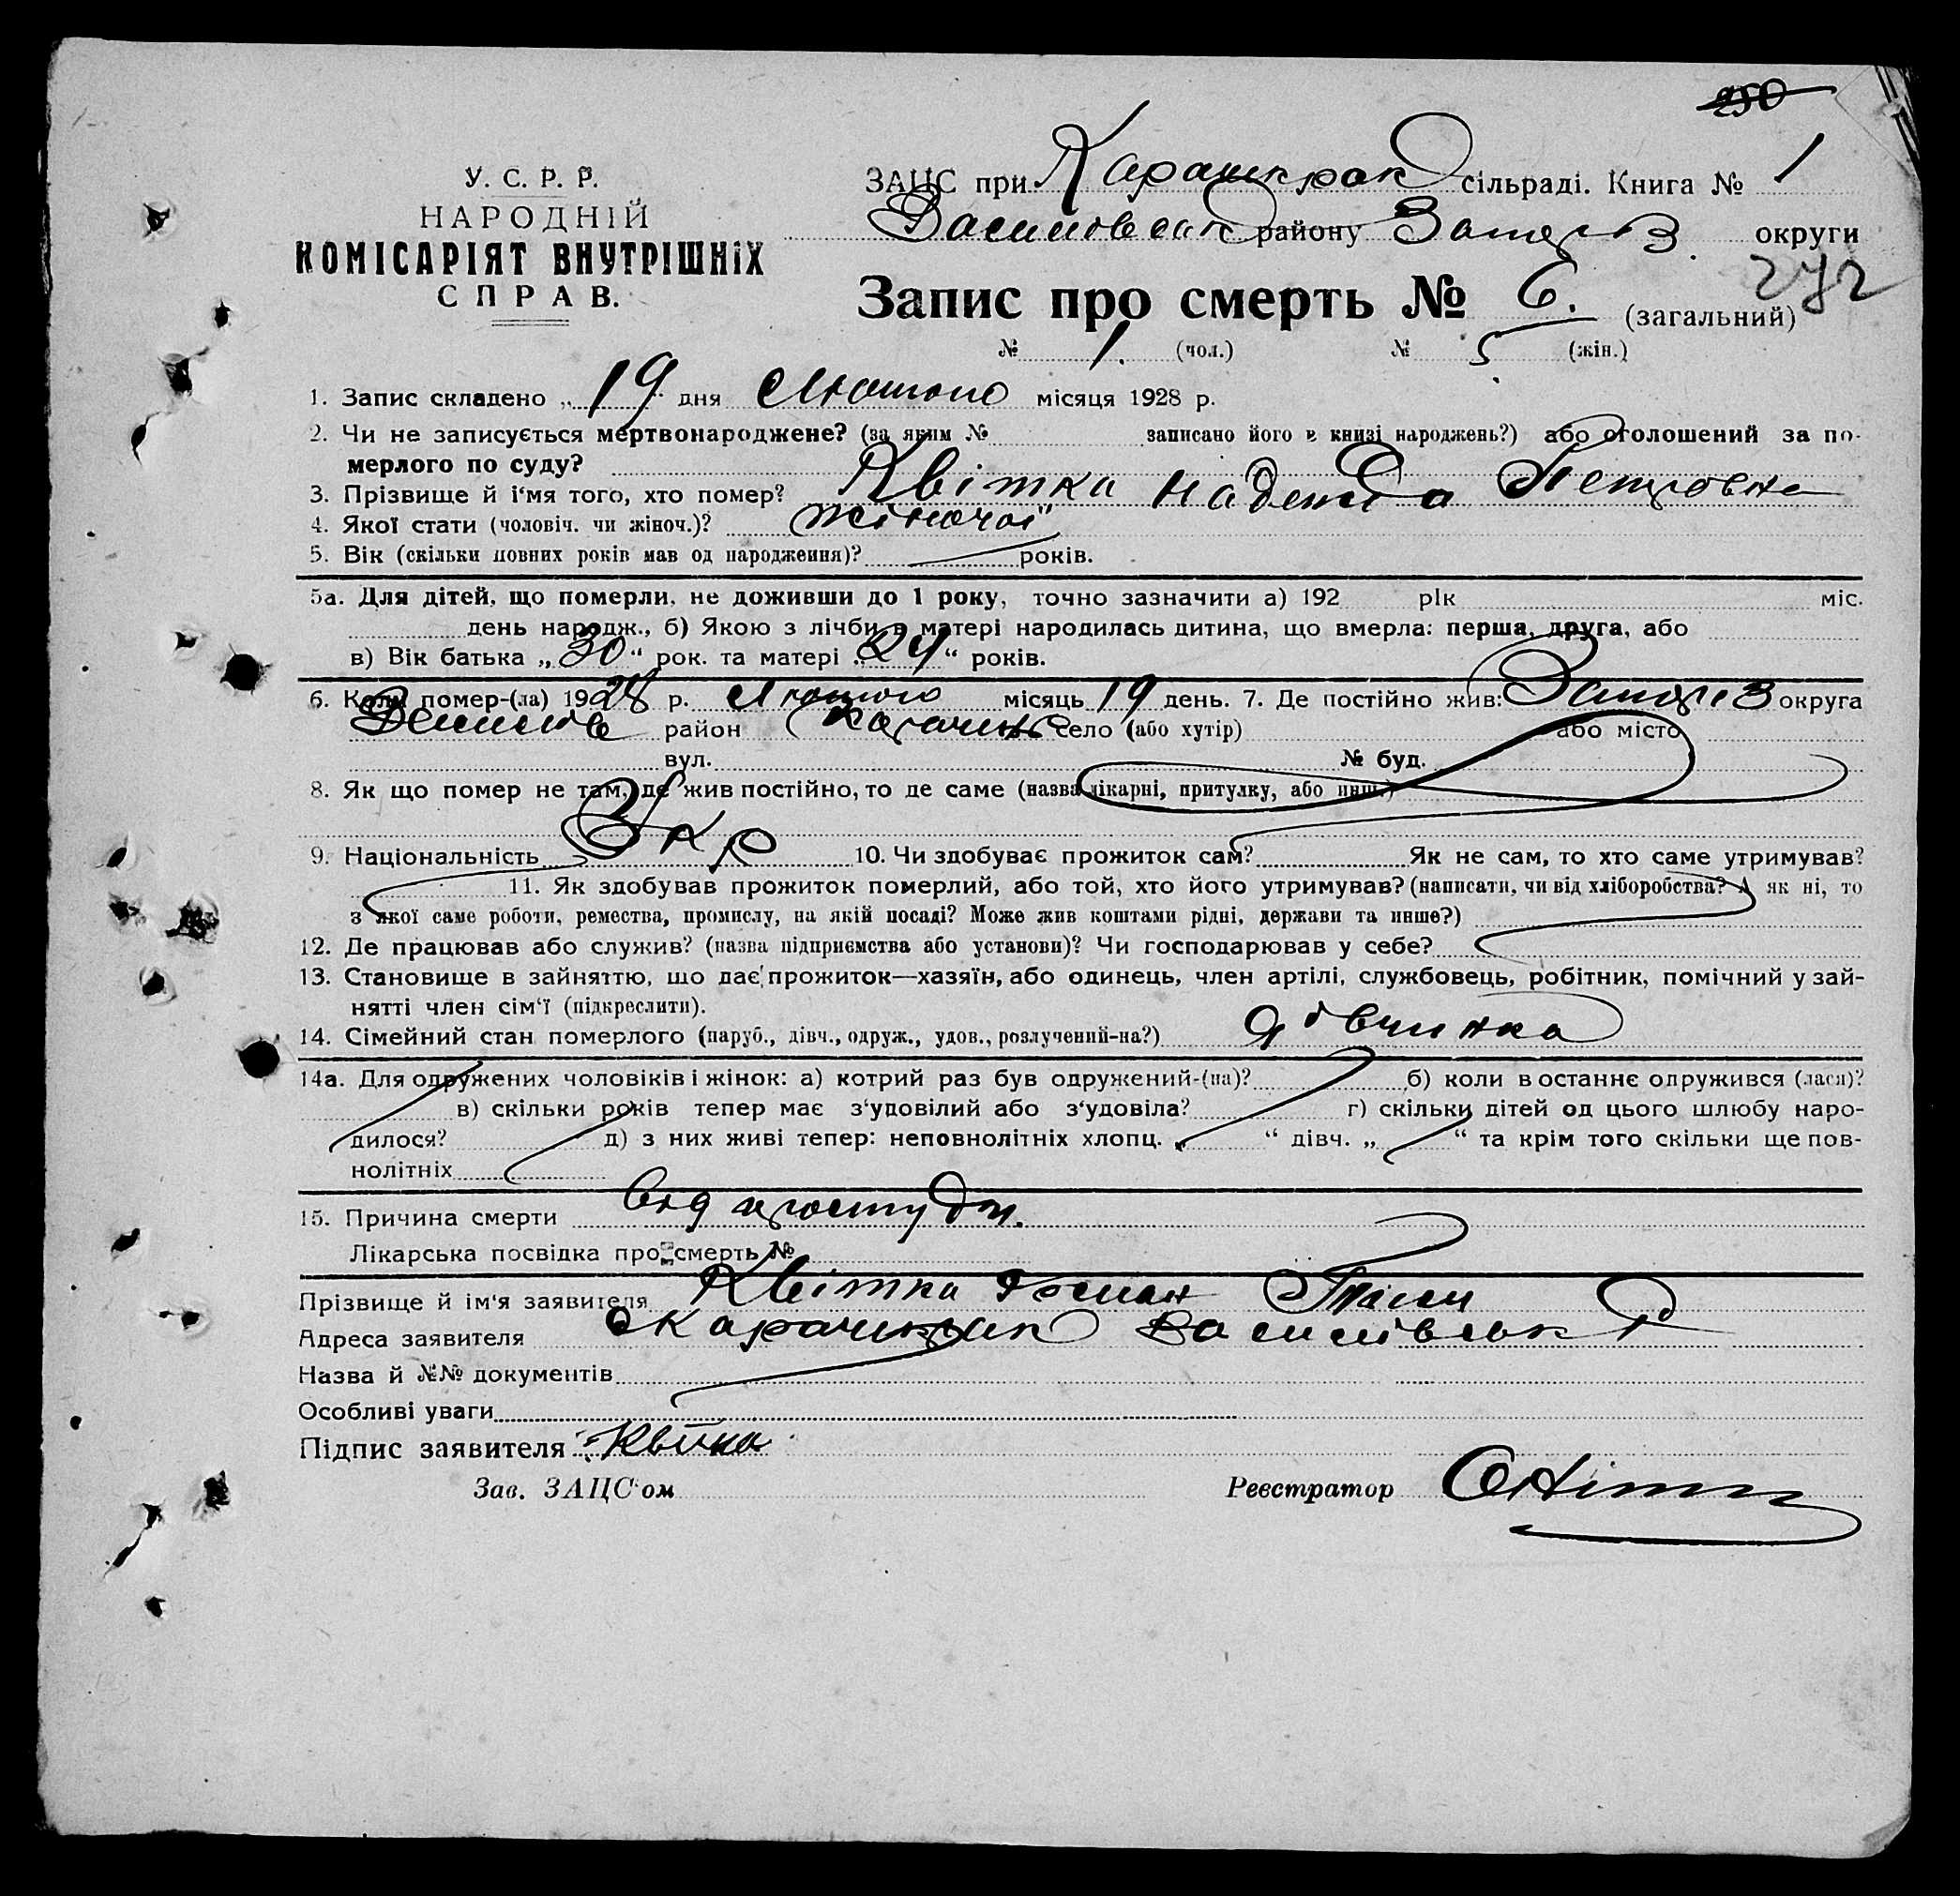 250
У. С. Р. Р.
НАРОДНІЙ
КОМІСАРІЯТ ВНУТРІШНІХ
СПРАВ.
ЗАЦС при Карачкрак сільраді. Книга № 1
Василівськ району Запоріз. округи
272
Запис про смерть № 6. (загальний)
№ 1. (чол.) № 5 (жін.)
1. Запис складено „ 19 " дня Лютого місяця 1928 р.
2. Чи не записується мертвонароджене? (за яким № записано його в книзі народжень?) або оголошений за по-
мерлого по суду?
3. Прізвище й і'мя того, хто помер? Квітка Надежда Петровна
4. Якої стати (чоловіч. чи жіноч.)? Жіночої
5. Вік (скільки повних років мав од народження)? років.
5а. Для дітей, що померли, не доживши до 1 року, точно зазначити а) 192 рік міс.
день народж., б) Якою з лічби в матері народилась дитина, що вмерла: перша, друга, або
в) Вік батька „ 30 " рок. та матері „ 24 " років.
6. Коли помер-(ла) 1928 р. Лютого місяць 19 день. 7. Де постійно жив: Запоріз округа
Василів район село (або хутір) або місто
вул. № буд.
8. Як що помер не там, де жив постійно, то де саме (назва лікарні, притулку, або инш.)
9. Національність Укр 10. Чи здобуває прожиток сам? Як не сам, то хто саме утримував?
11. Як здобував прожиток померлий, або той, хто його утримував? (написати, чи від хліборобства? А як ні, то
з якої саме роботи, ремества, промислу, на якій посаді? Може жив коштами рідні, держави та инше?)
12. Де працював або служив? (назва підприємства або установи)? Чи господарював у себе?
13. Становище в зайняттю, що дає прожиток—хазяїн, або одинець, член артілі, службовець, робітник, помічний у зай-
нятті член сім'ї (підкреслити).
14. Сімейний стан померлого (паруб., дівч., одруж., удов., розлучений-на?) дівчинка
14а. Для одружених чоловіків і жінок: а) котрий раз був одружений-(на)? б) коли востаннє одружився (лася)?
в) скільки років тепер має з'удовілий або з'удовіла? г) скільки дітей од цього шлюбу наро-
дилося? д) з них живі тепер: неповнолітніх хлопц. „ " дівч. „ " та крім того скільки ще пов-
нолітніх
15. Причина смерти від простуди.
Лікарська посвідка про смерть №
Прізвище й ім'я заявителя Квітка
Адреса заявителя Василівськ Р
Назва й №№ документів
Особливі уваги
Підпис заявителя Квітка
Зав. ЗАЦС'ом Реєстратор